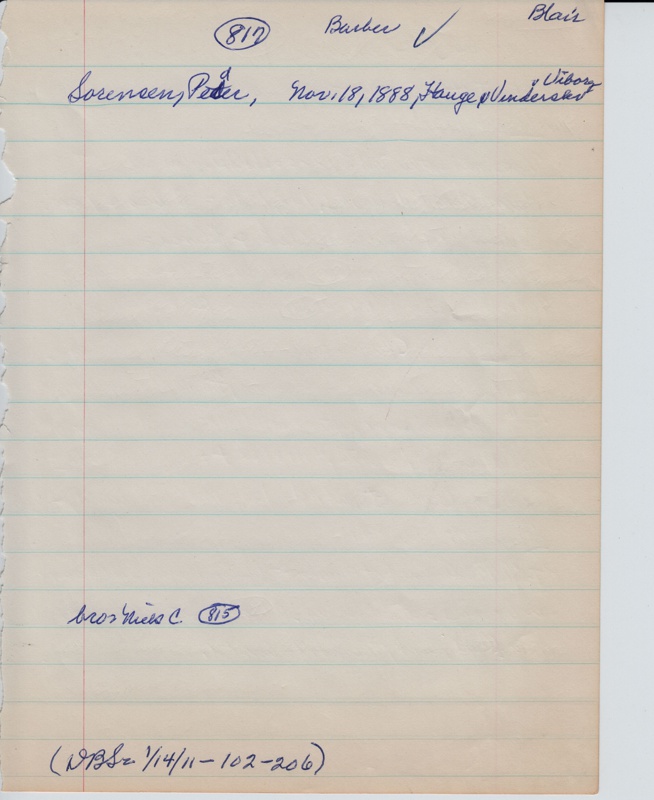 817 Barber ✓ Blair
Sorensen, Peder, Nov. 18, 1888, Hauge, Vinderslev Viborg
bror Niels C. 815
(DBS 1/14/11-102-206)